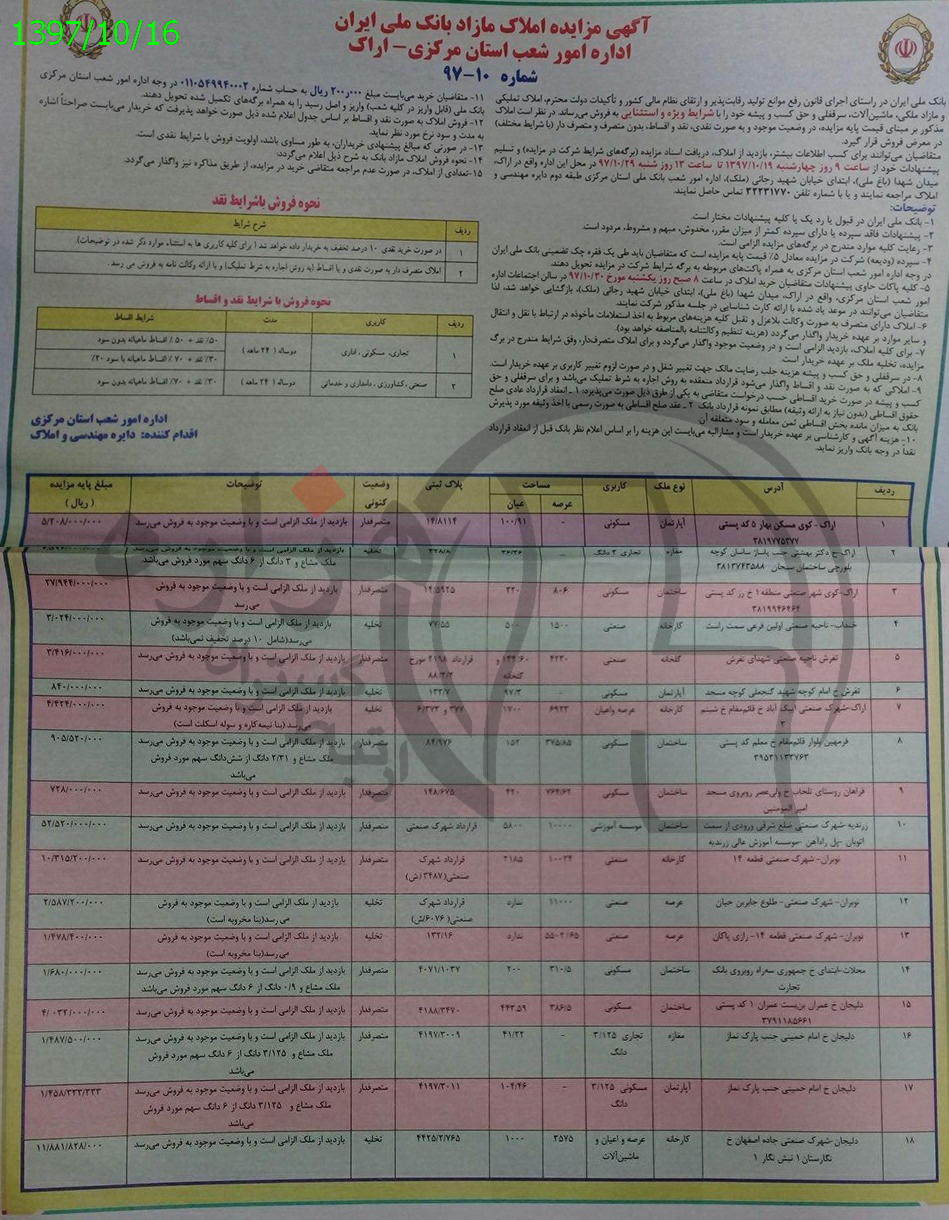 1397/10/16
آگهی مزایده املاک مازاد بانک ملی ایران
اداره امور شعب استان مرکزی- اراک
شماره ۱۰-۹۷
بانک ملی ایران در راستای اجرای قانون رفع موانع تولید رقابت‌پذیر و ارتقای نظام مالی کشور و تأکیدات دولت محترم، املاک تملیکی
و مازاد ملکی، ماشین‌آلات، سرقفلی و حق کسب و پیشه خود را با شرایط ویژه و استثنایی به فروش می‌رساند. در نظر است املاک
مذکور بر مبنای قیمت پایه مزایده، در وضعیت موجود و به صورت نقدی، نقد و اقساط، بدون متصرف و متصرف دار (با شرایط مختلف)
در معرض فروش قرار گیرد.
متقاضیان می‌توانند برای کسب اطلاعات بیشتر، بازدید از املاک، دریافت اسناد مزایده (برگه‌های شرایط شرکت در مزایده) و تسلیم
پیشنهادات خود از ساعت ۹ روز چهارشنبه ۱۳۹۷/۱۰/۱۹ تا ساعت ۱۳ روز شنبه ۹۷/۱۰/۲۹ در محل این اداره واقع در اراک،
میدان شهدا (باغ ملی)، ابتدای خیابان شهید رجائی (ملک)، اداره امور شعب بانک ملی استان مرکزی طبقه دوم دایره مهندسی و
املاک مراجعه نمایند و یا با شماره تلفن ۳۲۲۳۱۷۷۰ تماس حاصل نمایند.
توضیحات:
۱- بانک ملی ایران در قبول یا رد یک یا کلیه پیشنهادات مختار است.
۲- پیشنهادات فاقد سپرده یا دارای سپرده کمتر از میزان مقرر، مخدوش، مبهم و مشروط، مردود است.
۳- رعایت کلیه موارد مندرج در برگه‌های مزایده الزامی است.
۴- سپرده (ودیعه) شرکت در مزایده معادل ۵٪ قیمت پایه مزایده است که متقاضیان باید طی یک فقره چک تضمینی بانک ملی ایران
در وجه اداره امور شعب استان مرکزی به همراه پاکت‌های مربوطه به برگه شرایط شرکت در مزایده تحویل دهند.
۵- کلیه پاکات حاوی پیشنهادات متقاضیان خرید املاک در ساعت ۸ صبح روز یکشنبه مورخ ۹۷/۱۰/۳۰ در سالن اجتماعات اداره
امور شعب استان مرکزی، واقع در اراک، میدان شهدا (باغ ملی)، ابتدای خیابان شهید رجائی (ملک)، بازگشایی خواهد شد، لذا
متقاضیان می‌توانند در موعد یاد شده با ارائه کارت شناسایی در جلسه مذکور شرکت نمایند.
۶- املاک دارای متصرف به صورت وکالت بلاعزل و تقبل کلیه هزینه‌های مربوط به اخذ استعلامات مأخوذه در ارتباط با نقل و انتقال
و سایر موارد بر عهده خریدار واگذار می‌گردد (هزینه تنظیم وکالتنامه بالمناصفه خواهد بود).
۷- برای کلیه املاک، بازدید الزامی است و در وضعیت موجود واگذار می‌گردد و برای املاک متصرف‌دار، وفق شرایط مندرج در برگ
مزایده، تخلیه ملک بر عهده خریدار است.
۸- در سرقفلی و حق کسب و پیشه هزینه جلب رضایت مالک جهت تغییر شغل و در صورت لزوم تغییر کاربری بر عهده خریدار است.
۹- املاکی که به صورت نقد و اقساط واگذار می‌شود قرارداد منعقده به روش اجاره به شرط تملیک می‌باشد و برای سرقفلی و حق
کسب و پیشه در صورت خرید اقساطی حسب درخواست متقاضی به یکی از طرق ذیل صورت می‌پذیرد: ۱ـ انعقاد قرارداد عادی صلح
حقوق اقساطی (بدون نیاز به ارائه وثیقه) مطابق نمونه قرارداد بانک ۲ـ عقد صلح اقساطی به صورت رسمی با اخذ وثیقه مورد پذیرش
بانک به میزان مانده بخش اقساطی ثمن معامله و سود متعلقه آن
۱۰- هزینه آگهی و کارشناسی بر عهده خریدار است و مشارالیه می‌بایست این هزینه را بر اساس اعلام نظر بانک قبل از انعقاد قرارداد
نقداً در وجه بانک واریز نماید.
۱۱- متقاضیان خرید می‌بایست مبلغ ۲۰۰ر۰۰۰ ریال به حساب شماره ۰۱۱۰۵۴۹۹۴۰۰۰۲ در وجه اداره امور شعب استان مرکزی
بانک ملی (قابل واریز در کلیه شعب) واریز و اصل رسید را به همراه برگه‌های تکمیل شده تحویل دهند.
۱۲- فروش املاک به صورت نقد و اقساط بر اساس جدول اعلام شده ذیل صورت خواهد پذیرفت که خریدار می‌بایست صراحتاً اشاره
به مدت و سود نرخ مورد نظر نماید.
۱۳- در صورتی که مبالغ پیشنهادی خریداران، به طور مساوی باشد، اولویت فروش با شرایط نقدی است.
۱۴- نحوه فروش املاک مازاد بانک به شرح ذیل اعلام می‌گردد:
۱۵-تعدادی از املاک، در صورت عدم مراجعه متقاضی خرید در مزایده، از طریق مذاکره نیز واگذار می‌گردد.
نحوه فروش باشرایط نقد
ردیف شرح شرایط
۱ در صورت خرید نقدی ۱۰ درصد تخفیف به خریدار داده خواهد شد ( برای کلیه کاربری ها به استثناء موارد ذکر شده در توضیحات).
۲ املاک متصرف دار به صورت نقدی و یا اقساط (به روش اجاره به شرط تملیک) و با ارائه وکالت نامه به فروش می رسد .
نحوه فروش با شرایط نقد و اقساط
ردیف کاربری مدت شرایط اقساط
۱ تجاری، مسکونی ، اداری دوساله ( ۲۴ ماهه ) ۵۰٪ نقد + ۵۰٪ اقساط ماهیانه بدون سود
۳۰٪ نقد + ۷۰٪ اقساط ماهیانه با سود ۲۰٪
۲ صنعتی ،کشاورزی ، دامداری و خدماتی دوساله ( ۲۴ ماهه ) ۳۰٪ نقد + ۷۰٪ اقساط ماهیانه بدون سود
اداره امور شعب استان مرکزی
اقدام کننده: دایره مهندسی و املاک
ردیف آدرس نوع ملک کاربری مساحت عرصه عیان پلاک ثبتی وضعیت کنونی توضیحات مبلغ پایه مزایده ( ریال )
۱ اراک - کوی مسکن بهار ۵ کد پستی ۳۸۱۹۷۷۵۳۷۷ آپارتمان مسکونی - ۱۰۰/۹۱ ۱۴/۸۱۱۴ متصرفدار بازدید از ملک الزامی است و با وضعیت موجود به فروش می‌رسد ۵/۲۰۸/۰۰۰/۰۰۰
۲ اراک-خ دکتر بهشتی جنب پاساژ ساسان کوچه بلورچی ساختمان سبحان ۳۸۱۳۷۴۳۵۸۸ مغازه تجاری ۳ دانگ - ۳۶/۳۶ تخلیه بازدید از ملک الزامی است و با وضعیت موجود به فروش می‌رسد ملک مشاع و ۳ دانگ از ۶ دانگ سهم مورد فروش می‌باشد.
۳ اراک-کوی شهر صنعتی منطقه ۱ خ رز کد پستی ۳۸۱۹۹۴۶۴۶۴ ساختمان مسکونی ۸۰۶ ۳۲۰ ۱۴/۵۹۲۵ متصرفدار بازدید از ملک الزامی است و با وضعیت موجود به فروش می‌رسد ۲۷/۹۴۴/۰۰۰/۰۰۰
۴ خنداب- ناحیه صنعتی اولین فرعی سمت راست کارخانه صنعتی ۱۵۰۰ ۵۰۰ ۷۷/۵۵ تخلیه بازدید از ملک الزامی است و با وضعیت موجود به فروش می‌رسد(شامل ۱۰ درصد تخفیف نمی‌باشد) ۳/۰۲۴/۰۰۰/۰۰۰
۵ تفرش ناحیه صنعتی شهدای تفرش گلخانه صنعتی ۴۲۳۰ ۱۴۴/۶۰ و گلخانه قرارداد ۲۱۹۸ مورخ ۸۸/۳/۲ متصرفدار بازدید از ملک الزامی است و با وضعیت موجود به فروش می‌رسد ۳/۴۱۶/۰۰۰/۰۰۰
۶ تفرش خ امام کوچه شهید گنجعلی کوچه مسجد آپارتمان مسکونی - ۹۷/۳ ۱۳۲/۷ تخلیه بازدید از ملک الزامی است و با وضعیت موجود به فروش می‌رسد ۸۴۰/۰۰۰/۰۰۰
۷ اراک-شهرک صنعتی ایبک آباد خ قائم‌مقام خ شبنم ۲ کارخانه عرصه واعیان ۶۹۲۳ ۱۷۰۰ ۳۷۷ و ۶/۳۷۳ متصرفدار بازدید از ملک الزامی است و با وضعیت موجود به فروش می‌رسد (بنا نیمه‌کاره و سوله اسکلت است) ۴/۴۲۴/۰۰۰/۰۰۰
۸ فرمهین بلوار قائم‌مقام خ معلم کد پستی ۳۹۵۳۱۱۳۳۷۶۳ ساختمان مسکونی ۳۷۵/۸۵ ۱۵۲ ۸۴/۹۷۶ متصرفدار بازدید از ملک الزامی است و با وضعیت موجود به فروش می‌رسد ملک مشاع و ۲/۳۱ دانگ از شش‌دانگ سهم مورد فروش می‌باشد ۹۰۵/۵۲۰/۰۰۰
۹ فراهان روستای تلخاب خ ولی‌عصر روبروی مسجد امیرالمومنین ساختمان مسکونی ۷۶۴/۶۲ ۴۲۰ ۱۴۸/۶۷۵ متصرفدار بازدید از ملک الزامی است و با وضعیت موجود به فروش می‌رسد ۷۲۸/۰۰۰/۰۰۰
۱۰ زرندیه-شهرک صنعتی ضلع شرقی ورودی از سمت اتوبان -پل راه‌آهن -موسسه آموزش عالی زرندیه ساختمان موسسه آموزشی ۱۰۰۰۰ ۵۸۰۰ قرارداد شهرک صنعتی متصرفدار بازدید از ملک الزامی است و با وضعیت موجود به فروش می‌رسد ۵۲/۵۲۰/۰۰۰/۰۰۰
۱۱ نوبران- شهرک صنعتی قطعه ۱۴ کارخانه صنعتی ۱۰۰۲۴ ۳۱۸۵ قرارداد شهرک صنعتی(۳۴۸۷/ش) متصرفدار بازدید از ملک الزامی است و با وضعیت موجود به فروش می‌رسد ۱۰/۳۱۵/۲۰۰/۰۰۰
۱۲ نوبران- شهرک صنعتی- طلوع جابربن حیان عرصه صنعتی ۱۱۰۰۰ ندارد قرارداد شهرک صنعتی(۶۰۷۶/ش) تخلیه بازدید از ملک الزامی است و با وضعیت موجود به فروش می‌رسد(بنا مخروبه است) ۲/۵۸۷/۲۰۰/۰۰۰
۱۳ نوبران- شهرک صنعتی قطعه ۱۴- رازی پاکان عرصه صنعتی ۵۵۰۲/۶۵ ندارد ۱۳۲/۱۶ تخلیه بازدید از ملک الزامی است و با وضعیت موجود به فروش می‌رسد(بنا مخروبه است) ۱/۴۷۸/۴۰۰/۰۰۰
۱۴ محلات-ابتدای خ جمهوری سه‌راه روبروی بانک تجارت ساختمان مسکونی ۳۱۰/۵ ۲۰۰ ۴۰۷۱/۱۰۳۷ متصرفدار بازدید از ملک الزامی است و با وضعیت موجود به فروش می‌رسد ملک مشاع و ۰/۹ دانگ از ۶ دانگ سهم مورد فروش می‌باشد ۱/۶۸۰/۰۰۰/۰۰۰
۱۵ دلیجان خ عمران بن‌بست عمران ۱ کد پستی ۳۷۹۱۱۸۵۶۶۱ ساختمان مسکونی ۳۸۶/۵ ۴۴۳/۵۹ ۴۱۸۸/۳۴۷۰ متصرفدار بازدید از ملک الزامی است و با وضعیت موجود به فروش می‌رسد ۴/۰۳۲/۰۰۰/۰۰۰
۱۶ دلیجان خ امام خمینی جنب پارک نماز مغازه تجاری ۳/۱۲۵ دانگ - ۴۱/۲۲ ۴۱۹۷/۳۰۰۹ متصرفدار بازدید از ملک الزامی است و با وضعیت موجود به فروش می‌رسد ملک مشاع و ۳/۱۲۵ دانگ از ۶ دانگ سهم مورد فروش می‌باشد ۱/۴۸۷/۵۰۰/۰۰۰
۱۷ دلیجان خ امام خمینی جنب پارک نماز آپارتمان مسکونی ۳/۱۲۵ دانگ - ۱۰۴/۴۶ ۴۱۹۷/۳۰۱۱ متصرفدار بازدید از ملک الزامی است و با وضعیت موجود به فروش می‌رسد ملک مشاع و ۳/۱۲۵ دانگ از ۶ دانگ سهم مورد فروش می‌باشد ۱/۴۵۸/۳۳۳/۳۳۳
۱۸ دلیجان -شهرک صنعتی جاده اصفهان خ نگارستان ۱ نبش نگار ۱ کارخانه عرصه و اعیان و ماشین‌آلات ۳۵۷۵ ۱۰۰۰ ۴۴۲۵/۲/۷۶۵ تخلیه بازدید از ملک الزامی است و با وضعیت موجود به فروش می‌رسد ۱۱/۸۸۱/۸۲۸/۰۰۰